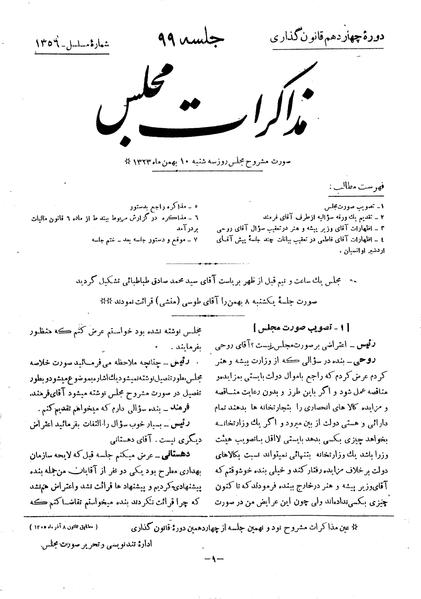 دورهٔ چهاردهم قانون گذاری
جلسه ۹۹
شمارهٔ مسلسل - ۱۳۵۶
مذاکرات مجلس
صورت مشروح مجلس روز سه شنبه ۱۰ بهمن ماه ۱۳۲۳
فهرست مطالب:
۱- تصویب صورت مجلس
۲- تقدیم یك ورقه سؤالیه از طرف آقای فرمند
۳- اظهارات آقای وزیر پیشه و هنر در تعقیب سؤال آقای روحی
۴- اظهارات آقای فاطمی در تعقیب بیانات چند جلسهٔ پیش آقای
اردشیر اوانسیان.
۵- مذاکره راجع بدستور
۶- مذاکره در گزارش مربوط ببند ط از ماده ۶ قانون مالیات
بر درآمد
۷- موقع و دستور جلسه بعد - ختم جلسه
مجلس یك ساعت و نیم قبل از ظهر بریاست آقای سید محمد صادق طباطبائی تشکیل گردید
صورت جلسهٔ یکشنبه ۸ بهمن را آقای طوسی (منشی) قرائت نمودند
[۱- تصویب صورت مجلس]
رئیس- اعتراضی بر صورت مجلس نیست؟ آقای روحی
روحی- بنده در سؤالی که از وزارت پیشه و هنر
کردم عرض کردم که راجع باموال دولت بایستی بمزایده و
مناقصه عمل شود و اگر باین طرز و بدون رعایت مناقصه
و مزایده کالا های انحصاری را بتجارتخانه ها بدهند تمام
دارائی و هستی دولت از بین میرود و اگر یك وزارتخانه
بخواهد چیزی بکسی بدهد بایستی لااقل بتصویب هیئت
وزراء باشد یك وزارتخانه بتنهائی نمیتواند نسبت بکالاهای
دولت بر خلاف مزایده رفتار کند و خیلی بنده خوشوقتم که
آقای وزیر پیشه و هنر در اینجا بنده فرمودند که تا کنون
چیزی بکسی نداده‌اند ولی چون این عرایض من در صورت
مجلس نوشته نشده بود خواستم عرض کنم که منظور
بفرمایند.
رئیس- چنانچه ملاحظه میفرمائید صورت خلاصه
مجلس بطور تفصیل نوشته نمیشود یك اشاره بموضوع میشود و بطور
تفصیل در صورت مشروح مجلس نوشته میشود آقای فرمند.
فرمند- بنده سؤالی دارم که میخواهم تقدیم کنم.
رئیس- بسیار خوب سؤال را التفات بفرمائید اعتراض
دیگری نیست. آقای دهستانی
دهستانی- عرض میکنم جلسه قبل که لایحه سازمان
بهداری مطرح بود یکی دو نفر از آقایان من جمله بنده
پیشنهادی کردیم و پیشنهاد ها قرائت نشد و اعتراض هم نشد
که چرا قرائت نکردند بنده میخواستم تقاضا کنم که
عین مذاکرات مشروح نود و نهمین جلسه از چهاردهمین دورهٔ قانون گذاری
(مطابق قانون ۸ آذر ماه ۱۳۰۵)
ادارهٔ تندنویسی و تحریر صورت مجلس
-۱-